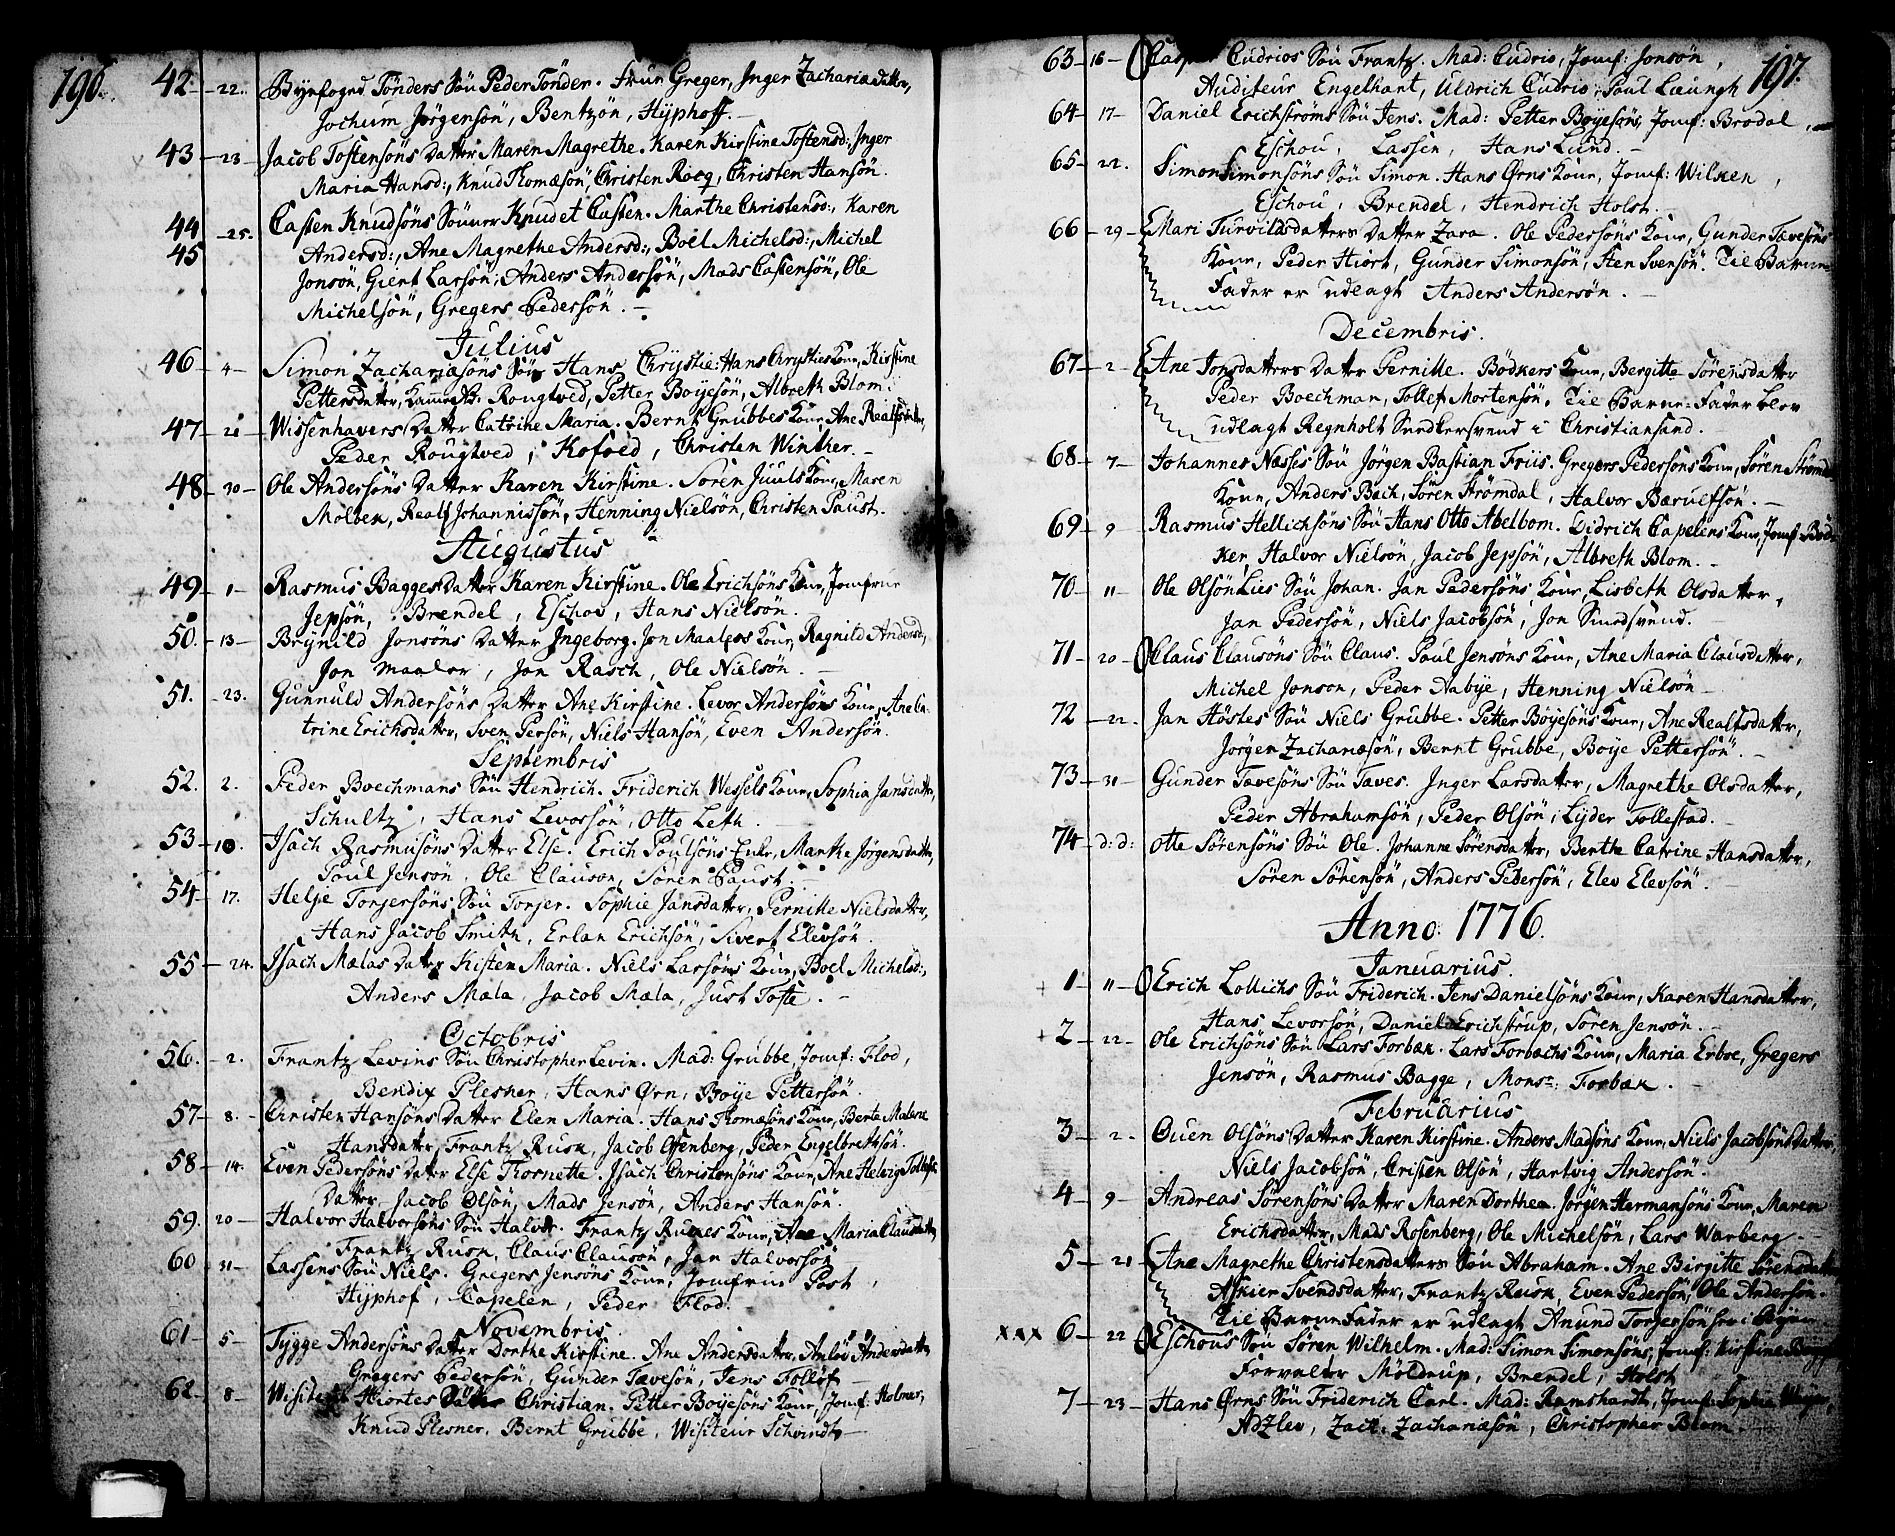 196.
42 - 22. Byefoged Tönders Sön Peder Tönder. Frue Greger, Inger Zachariædatter,
Jochum Jörgensön, Bentzön, Hyphoff.
43 - 23 - Jacob Tostensöns Datter Maren Magrethe. Karen Kirstine Tostensd:, Inger
Maria Hansd:, Knud Thomæsön, Christen Rocq, Christen Hansön.
44 - 25. Casten Knudsöns Sönner Knud et Casten. Marthe Christensd:, Karen
45 Andersd:, Ane Magrethe Andersd:, Boel Michelsd:, Michel
Jonsön, Giert Larsön, Anders Andersön, Mads Castensön, Ole
Michelsön, Gregers Pedersön.
Julius
46 - 4 - Simon Zachariæsöns Sön Hans Chrÿstie: Hans Chrÿsties Kone, Kirstine
Pettersdatter, Rougtved, Petter Boÿesön, Albreth Blom.
47 - 21 - Wissenhavers Datter Catrine Maria. Bernt Grubbes Kone, Ane Realfsdatter,
Peder Rougtved, Kofoed, Christen Winther.
48 - 30 - Ole Andersöns Datter Karen Kirstine. Sören Juuls Kone, Maren
Molbek, Realf Johannissön, Henning Nielsön, Christen Paust.
Augustus
49 - 1 - Rasmus Bagges Datter Karen Kirstine. Ole Erichsöns Kone, Jomfrue
Jepsön, Brendel, Eschou, Hans Nielsön.
50. - 13 - Brÿnild Jonsöns Datter Ingeborg. Jon Maalers Kone, Ragnild Andersd:,
Jon Maaler, Jon Rasch, Ole Nielsön.
51. - 23. Gunnuld Andersöns Datter Ane Kirstine. Levor Andersöns Kone, Ane Ca-
trine Erichsdatter, Sven Persön, Niels Hansön, Even Andersön.
Septembris
52. 2. Peder Boechmans Sön Hendrich. Friderich Wessels Kone, Sophia Jansdatter,
Schultz, Hans Levorsön, Otto Leth.
53 - 10. Isach Rasmusöns Datter Else. Erich Poulsöns Enke, Marthe Jörgensdatter,
Poul Jensön, Ole Clauson, Sören Paust.
54 - 17. Helje Torjersöns Sön Torjer. Sophie Jansdatter, Pernille Nielsdatter,
Hans Jacob Smith, Erlan Erichsön, Sivert Elevsön.
55 - 24. Isach Mælas Datter Kisten Maria. Niels Larsöns Kone, Boel Michelsd:,
Anders Mæla, Jacob Mæla, Just Toste.
Octobris
56. - 2. Frantz Levins Sön Christopher Levin. Mad: Grubbe, Jomf: Flod,
Bendix Plesner, Hans Ørn, Boÿe Pettersön.
57 - 8. - Christen Hansöns Datter Elen Maria. Hans Thomæsöns Kone, Berte Malene
Hansdatter, Frantz Rusk, Jacob Ossenberg, Peder Engelbretzön.
58 - 14. Even Pedersöns Datter Else Thornette. Isach Christensöns Kone, Ane Helvig Tollefs
Datter, Jacob Olsön, Mads Jensön, Anders Hansön.
59. 20 - Halvor Halvorsöns Sön Halvor. Frantz Ruskes Kone, Ane Maria Clausdatter,
Frantz Rusk, Claus Clausön, Jan Halvorsön
60 - 31 - Lassens Sön Niels. Gregers Jensöns Kone, Jomfrue Post,
Hÿphof, Capelen, Peder Flod.
Novembris.
61 - 5 - Tÿgge Andersöns Datter Dorthe Kirstine. Ane Andersdatter, Anlou Andersdatter,
Gregers Pedersön, Gunder Tævesön, Jens Tollöf
62 - 8 - Wisiteur Hiortes Christian. Petter Boÿesöns Kone, Jomf: Holmer,
Knud Plesner, Bernt Grubbe, Wisiteur Schvindt
197.
63 - 16 - Casper Cudrios Sön Frantz. Mad: Cudrio, Jomf: Jonsön,
Auditeur Engelhart, Uldrich Cudrio, Poul Læungh
64 - 17 - Daniel Erichströms Sön Jens. Mad: Petter Boÿesöns, Jomf: Brodal,
Eschou, Lassen, Hans Lund.
65 - 22. Simon Simonsöns Sön Simon. Hans Ørns Kone, Jomf: Wilken,
Eschou, Brendel, Hendrich Holst.
66 - 29 - Mari Turvildsdatters Datter Zara. Ole Pedersöns Kone, Gunder Tævesöns
Kone, Peder Hiort, Gunder Simonsön, Sten Svensön. Til Barne-
Fader er udlagt Anders Andersön.
Decembris.
67 - 2 - Ane Jonsdatters Datter Pernille. Bödkers Kone, Bergitte Sörensdatter
Peder Boechman, Tollef Mortensön. Til Barne-Fader blev
udlagt Regnholt Snedkersvend i Christiansand.
68 - 7 - Johannes Næsses Sön Jörgen Bastian Friis. Gregers Pedersöns Kone, Sören Strömdals
Kone, Anders Bach, Sören Strömdal, Halvor Barulfsön.
69 - 9 - Rasmus Hellichsöns Sön Hans Otto Abelborn. Didrich Capelens Kone, Jomf: Böd-
ker, Halvor Nielsön, Jacob Jepsön, Albreth Blom.
70 - 11 - Ole Olsön Lies Sön Johan. Jan Pedersöns Kone, Lisbeth Olsdatter,
Jan Pedersön, Niels Jacobsön, Jon Smedsvend.
71 - 20 - Claus Clausöns Sön Claus. Poul Jensöns Kone, Ane Maria Clausdatter,
Michel Jonson, Peder Aabÿe, Henning Nielsön
72 - 22. Jan Höstes Sön Niels Grubbe. Petter Boÿesöns Kone, Ane Realfsdatter,
Jörgen Zachariæsön, Bernt Grubbe, Boÿe Pettersön.
73 - 31 - Gunder Tævesöns Sön Tæves. Inger Larsdatter, Magrethe Olsdatter,
Peder Abrahamsön, Peder Olsön, Lÿder Tollestad.
74 - d: d: Otte Sörensöns Sön Ole. Johanne Sörensdatter, Berthe Catrine Hansdatter,
Sören Sörensön, Anders Pedersön, Elev Elevsön.
Anno: 1776.
Januarius.
1 - 11 - Erich Lollichs Sön Friderich. Jens Danielsöns Kone, Karen Hansdatter,
Hans Levorsön, Daniel Erichstrup, Sören Jensön.
2 - 22 - Ole Erichsöns Sön Lars Forbæk. Lars Forbechs Kone, Maria Erboe, Gregers
Jensön, Rasmus Bagge, Monsr: Forbæk.
Februarius
3 - 2. Ouen Olsöns Datter Karen Kirstine. Anders Madsöns Kone, Niels Jacobsöns Datter,
Niels Jacobsön, Cristen Olsön, Hartvig Andersön.
4 - 9 - Andreas Sörensöns Datter Maren Dorthea. Jörgen Hermansöns Kone, Maren
Erichsdatter, Mads Rosenberg, Ole Michelsön, Lars Warberg.
5 - 21 Ane Magrethe Christensdatters Sön Abraham. Ane Birgitte Sörensdatter
Askier Svendsdatter, Frantz Rusk, Even Pedersön, Ole Andersön.
Til Barne Fader er udlagt Anund Torgersön her i Byen.
xxx 6 - 22 Eschous Sön Sören Wilhelm. Mad: Simon Simonsöns, Jomf: Kirstine
Forvalter Möldrup, Brendel, Holst
7 - 23 - Hans Ørns Sön Friderich Carl. Mad: Ramshardt, Jomf: Sophie
Adzlev, Zach: Zachariæsön, Christopher Blom.